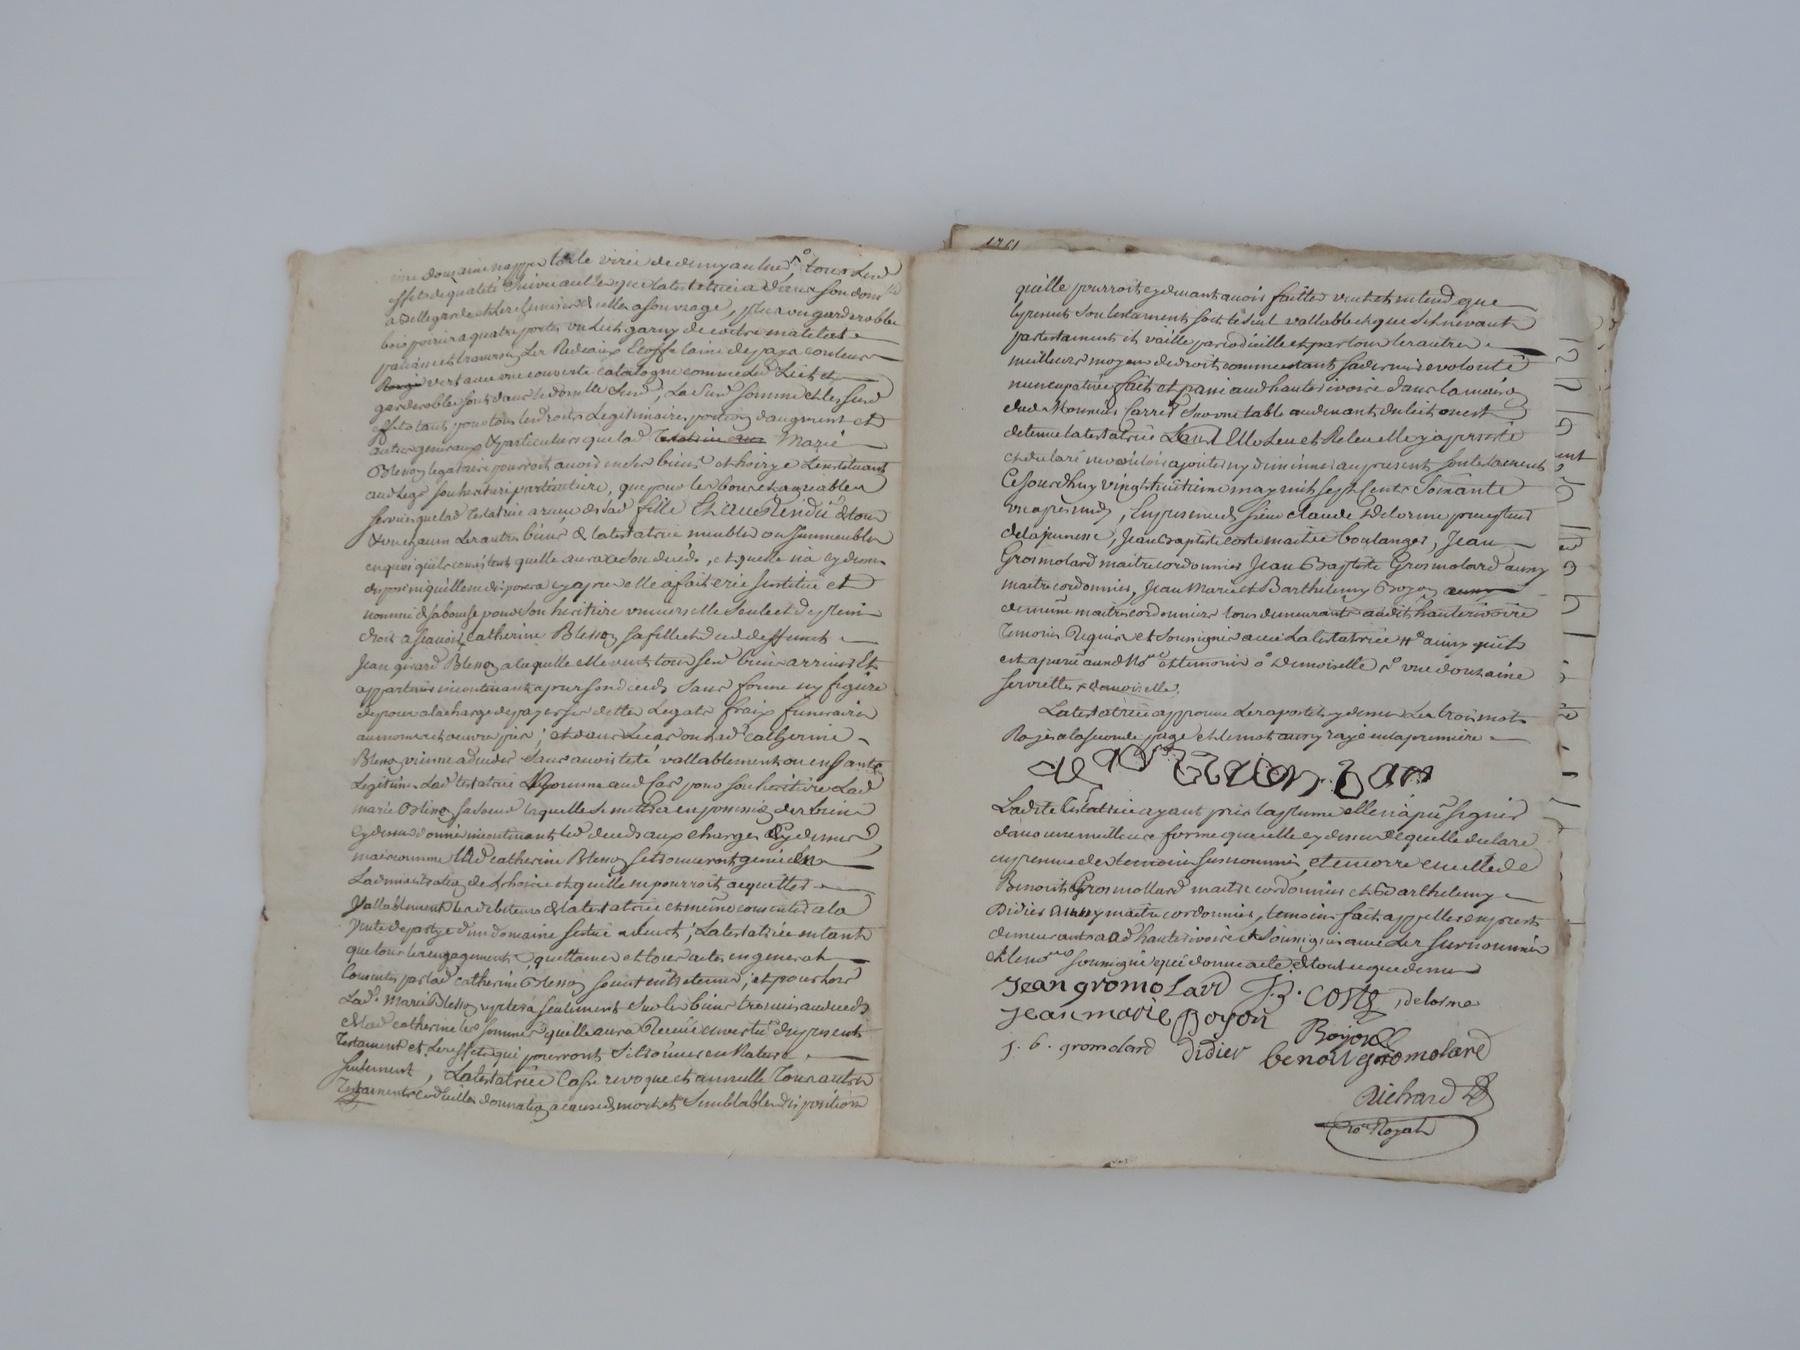 une douzaine nappe toile virée de demy aulne, tous les d
effets de qualité suivant les que la testatrice a dans son dom
a
bois poirier a quatre portes un lict garny de coitre matelat
paliasse et traversin, les Rideaux Etoffe laine de couleur
vert avec une couverte catalogne comme led Lict et
garderobbe sont dans le domicille La sud somme et les sud
effets tant pour tous les droits Legitimaires, portion d'augment et
autres generaux & particuliers que lad Marie
Blesson legataire pourroit avoir en des biens et hoirye L'instituant
aud legs son heritiere particuliere, que pour les bons et agreables
services que lad testatrice a reçu de sad fille Et au Residu de tous
& un chacun les autres biens de la testatrice meubles ou Immeubles
en quoi qu'ils consistent quelle aura a son deceds, et quelle n'a cy dessus
disposé ni quelle ne disposera cy apres elle a fait crée Institué et
nommé de sa bouche pour son heritiere universelle seule et de plein
droit a sçavoir catherine Blesson sa fille et dud deffunct
Jean girard Blesson a laquelle elle veut tous ses d biens arriver Et
appartenir incontinent apres son deceds sans forme ny figure
de procès a la charge de payer ses dettes Legats fraix funeraires
aumones et oeuvres pies; et dans le cas ou lad Catherine
Blesson vienne a deceder sans avoir testé vallablement ou enfants
Legitimes Lad testatrice Nomme aud cas pour son heritiere Lad
marie Blesson sa soeur laquelle se mettra en possession des biens
cy dessus donnés incontinent led deceds aux charges Cy dessus
mais comme lad catherine Blesson se trouveroit genée dans
Ladministration de L'hoirie et quelle ne pourroit acquitter
Vallablement les debiteurs de la testatrice et même consentir a la
Vente de partye d'un domaine situé a La testatrice entend
que tous les engagements, quittances et tous actes en general
Consentis par lad catherine Blesson soient entretenus, et pour lors
Lad. Marie Blesson comptera seulement sur les biens trouvés au deceds
de lad catherine les sommes quelle aura Reçue en vertu du present
Testament et les effets qui pourront se trouver en Nature
seulement, La testatrice Casse revoque et annulle Tous autres
Testaments Codicilles donnation a cause de mort et Semblables disposition
1761
qu'elle pourroit cy devant avoir faittes veut et entend que
le present son testament soit le seul vallable et que s'il ne vaut
par testament il vaille par codicille et par tous les autres
meilleurs moyens de droit comme etant sa derniere volonté
nuncupative fait et passé aud hauterivoire dans la maison
dud Monsieur Carret Sur une table au devant du lict ou est
detenue la testatrice L'an Elle Leu et Releu elle y a persisté
et declaré ne vouloir ajouter ny diminuer au present son testament
Cejourd'huy vingt huitieme may mil sept Cents Soixante
un apres midy, En presence de sieur claude Delorme precepteur
de la jeunesse, Jean Baptiste coste maitre boulanger, Jean
Gromolard maitre cordonnier Jean Baptiste Gromolard aussy
maitre cordonnier, Jean Marie et Barthelemy Boyon
de même maitres cordonniers tous demeurants audit hauterivoire
temoins Requis et Soussignés avec la testatrice ainsy quils
est aparu aud No.re et temoins o Demoiselle une douzaine
serviettes x demoiselle.
La testatrice approuve les apostils cy dessus Les trois mots
Rayés a la seconde page et le mot aussy rayé en la premiere
Ladite testatrice ayant pris la plume elle n'a pû signer
dans une meilleure forme que celle cy dessus de quelle declare
en presence des temoins susnommés, et encore en celle de
Benoit Gromollard maitre cordonnier et Barthelemy
Didier aussy maitre cordonnier, temoins fait appeller expres
demeurants aud hauterivoire & soussignés avec les surnommés
et le no.re soussigné qui donne acte de tout ce que dessus
Jean gromolard J. B. COSTE, delorme
jean marie Boyon Boyon
j. b. gromolard didier benoit gromolard
Richard
no.re Royal